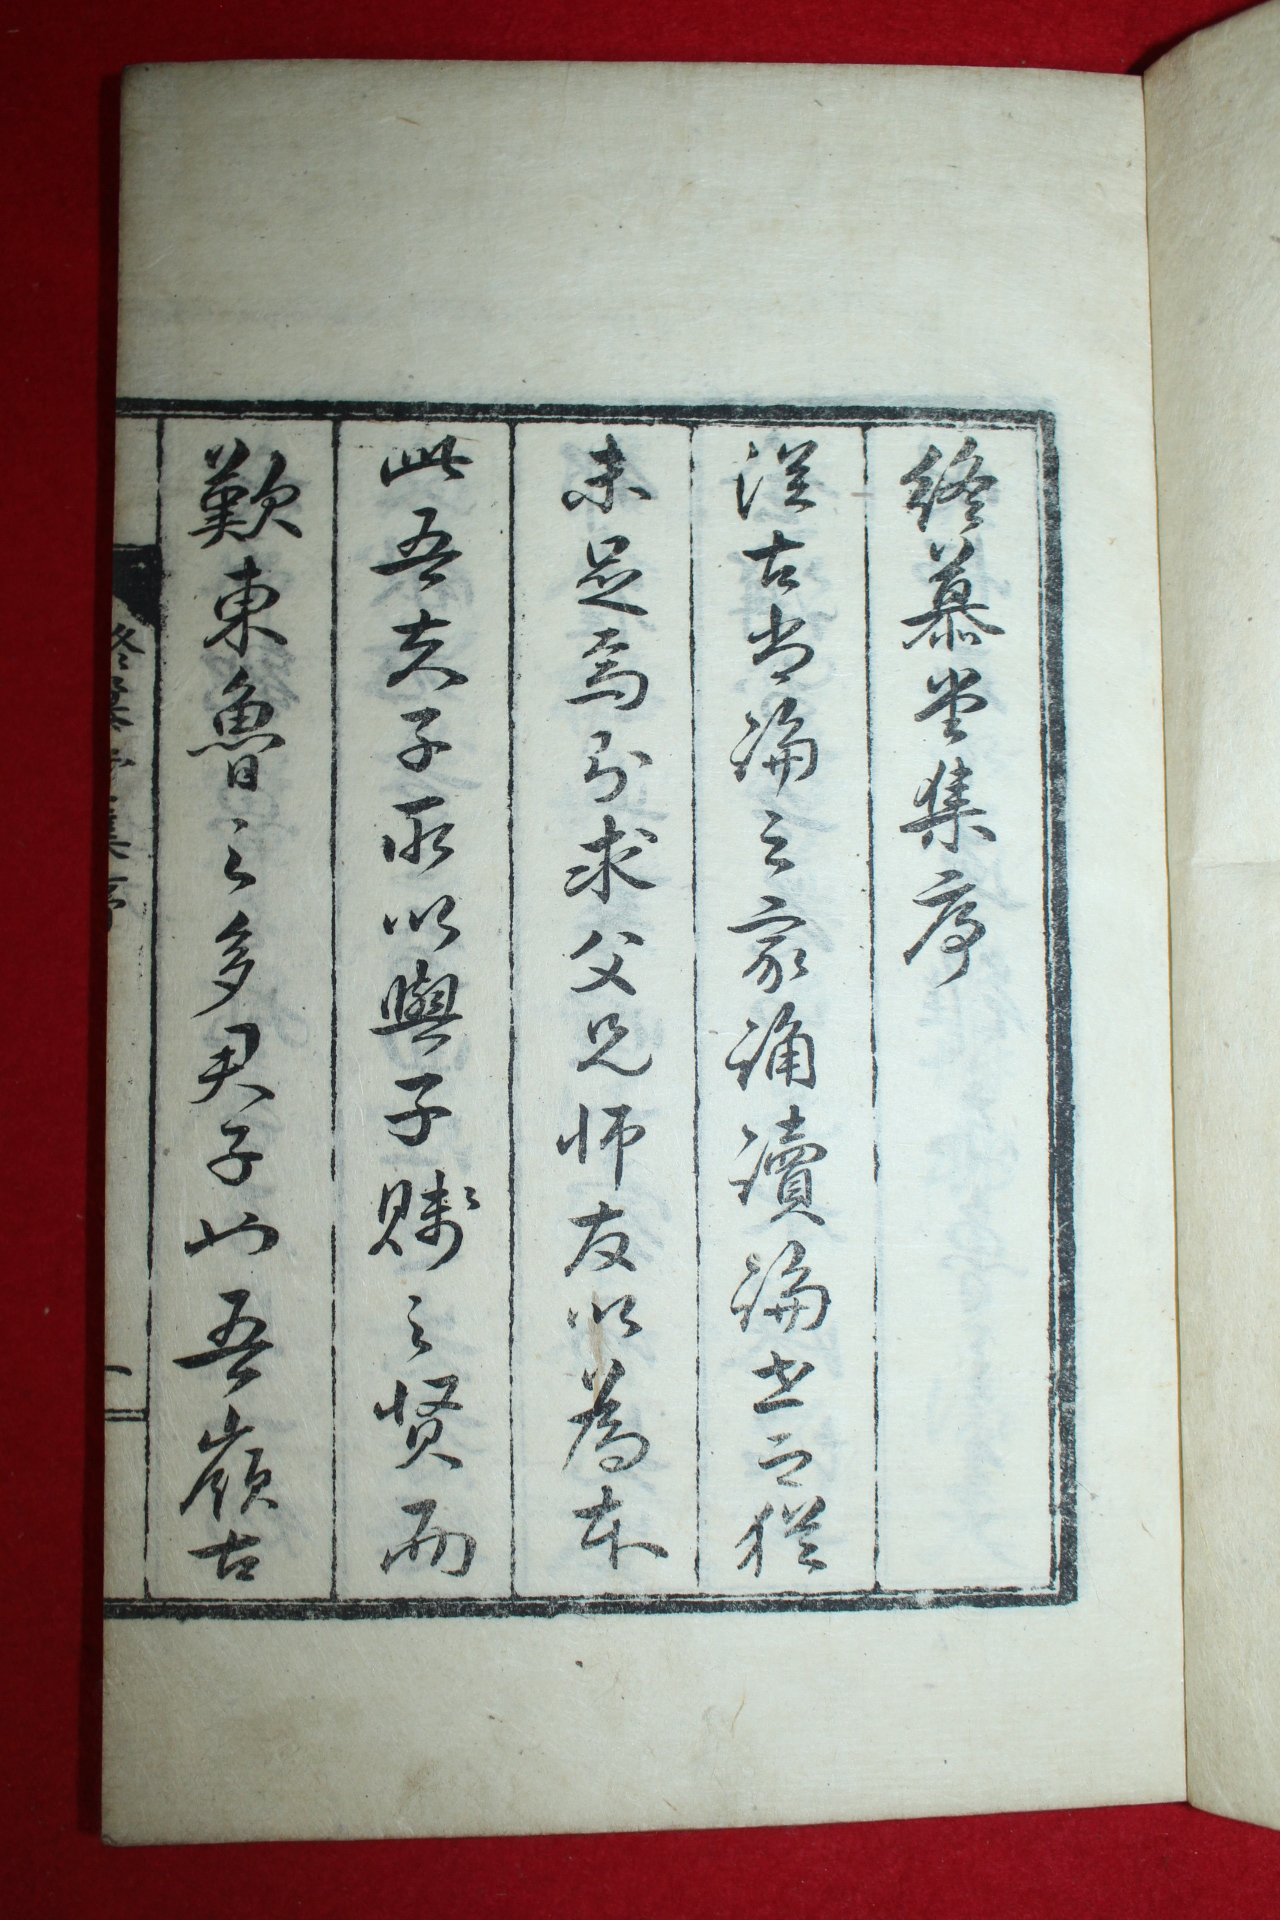 終慕堂集序
從古尚論之家誦讀論世之猶
未足焉則求父兄師友以為本
此吾夫子所以與子賤之賢而
歎東魯之多君子也吾嶺古
終慕堂集序
一